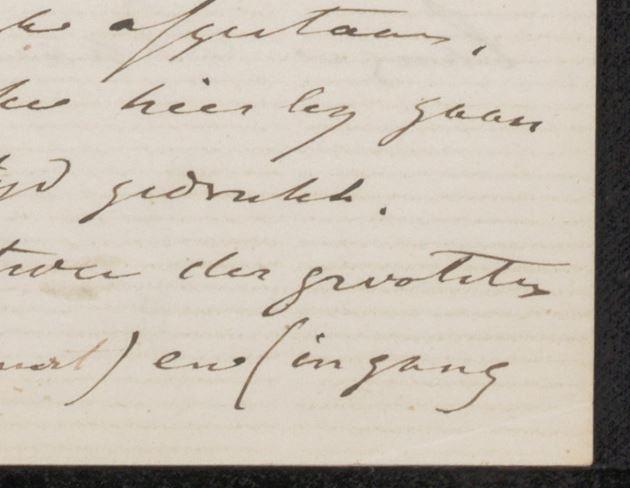 afgestaan.
hierby gaan
gedrukt.
twee der grootste
) en (ingang